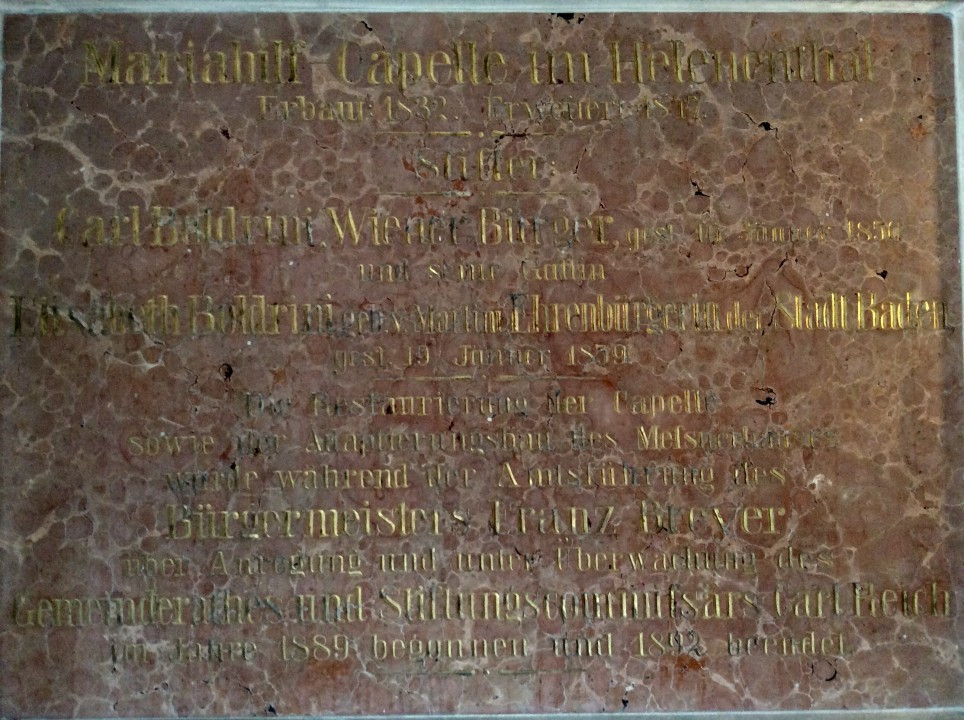 Mariahilf-Capelle im Helenenthal
Erbaut: 1832. Erweitert:
Stifter:
Carl Boldrini, Wiener Bürger, gest. Jänner 1850
und seine Gattin
Elisabeth Boldrini, geb. v. Martini, Ehrenbürgerin der Stadt Baden
gest. 19. Jänner 1859.
Die Restaurierung der Capelle
sowie der Adaptierungsbau des Messnerhauses
wurde während der Amtsführung des
Bürgermeisters Franz Breyer
über Anregung und unter Überwachung des
Gemeinderathes und Stiftungscommissärs Carl Reich
im Jahre 1889 begonnen und 1892 beendet.